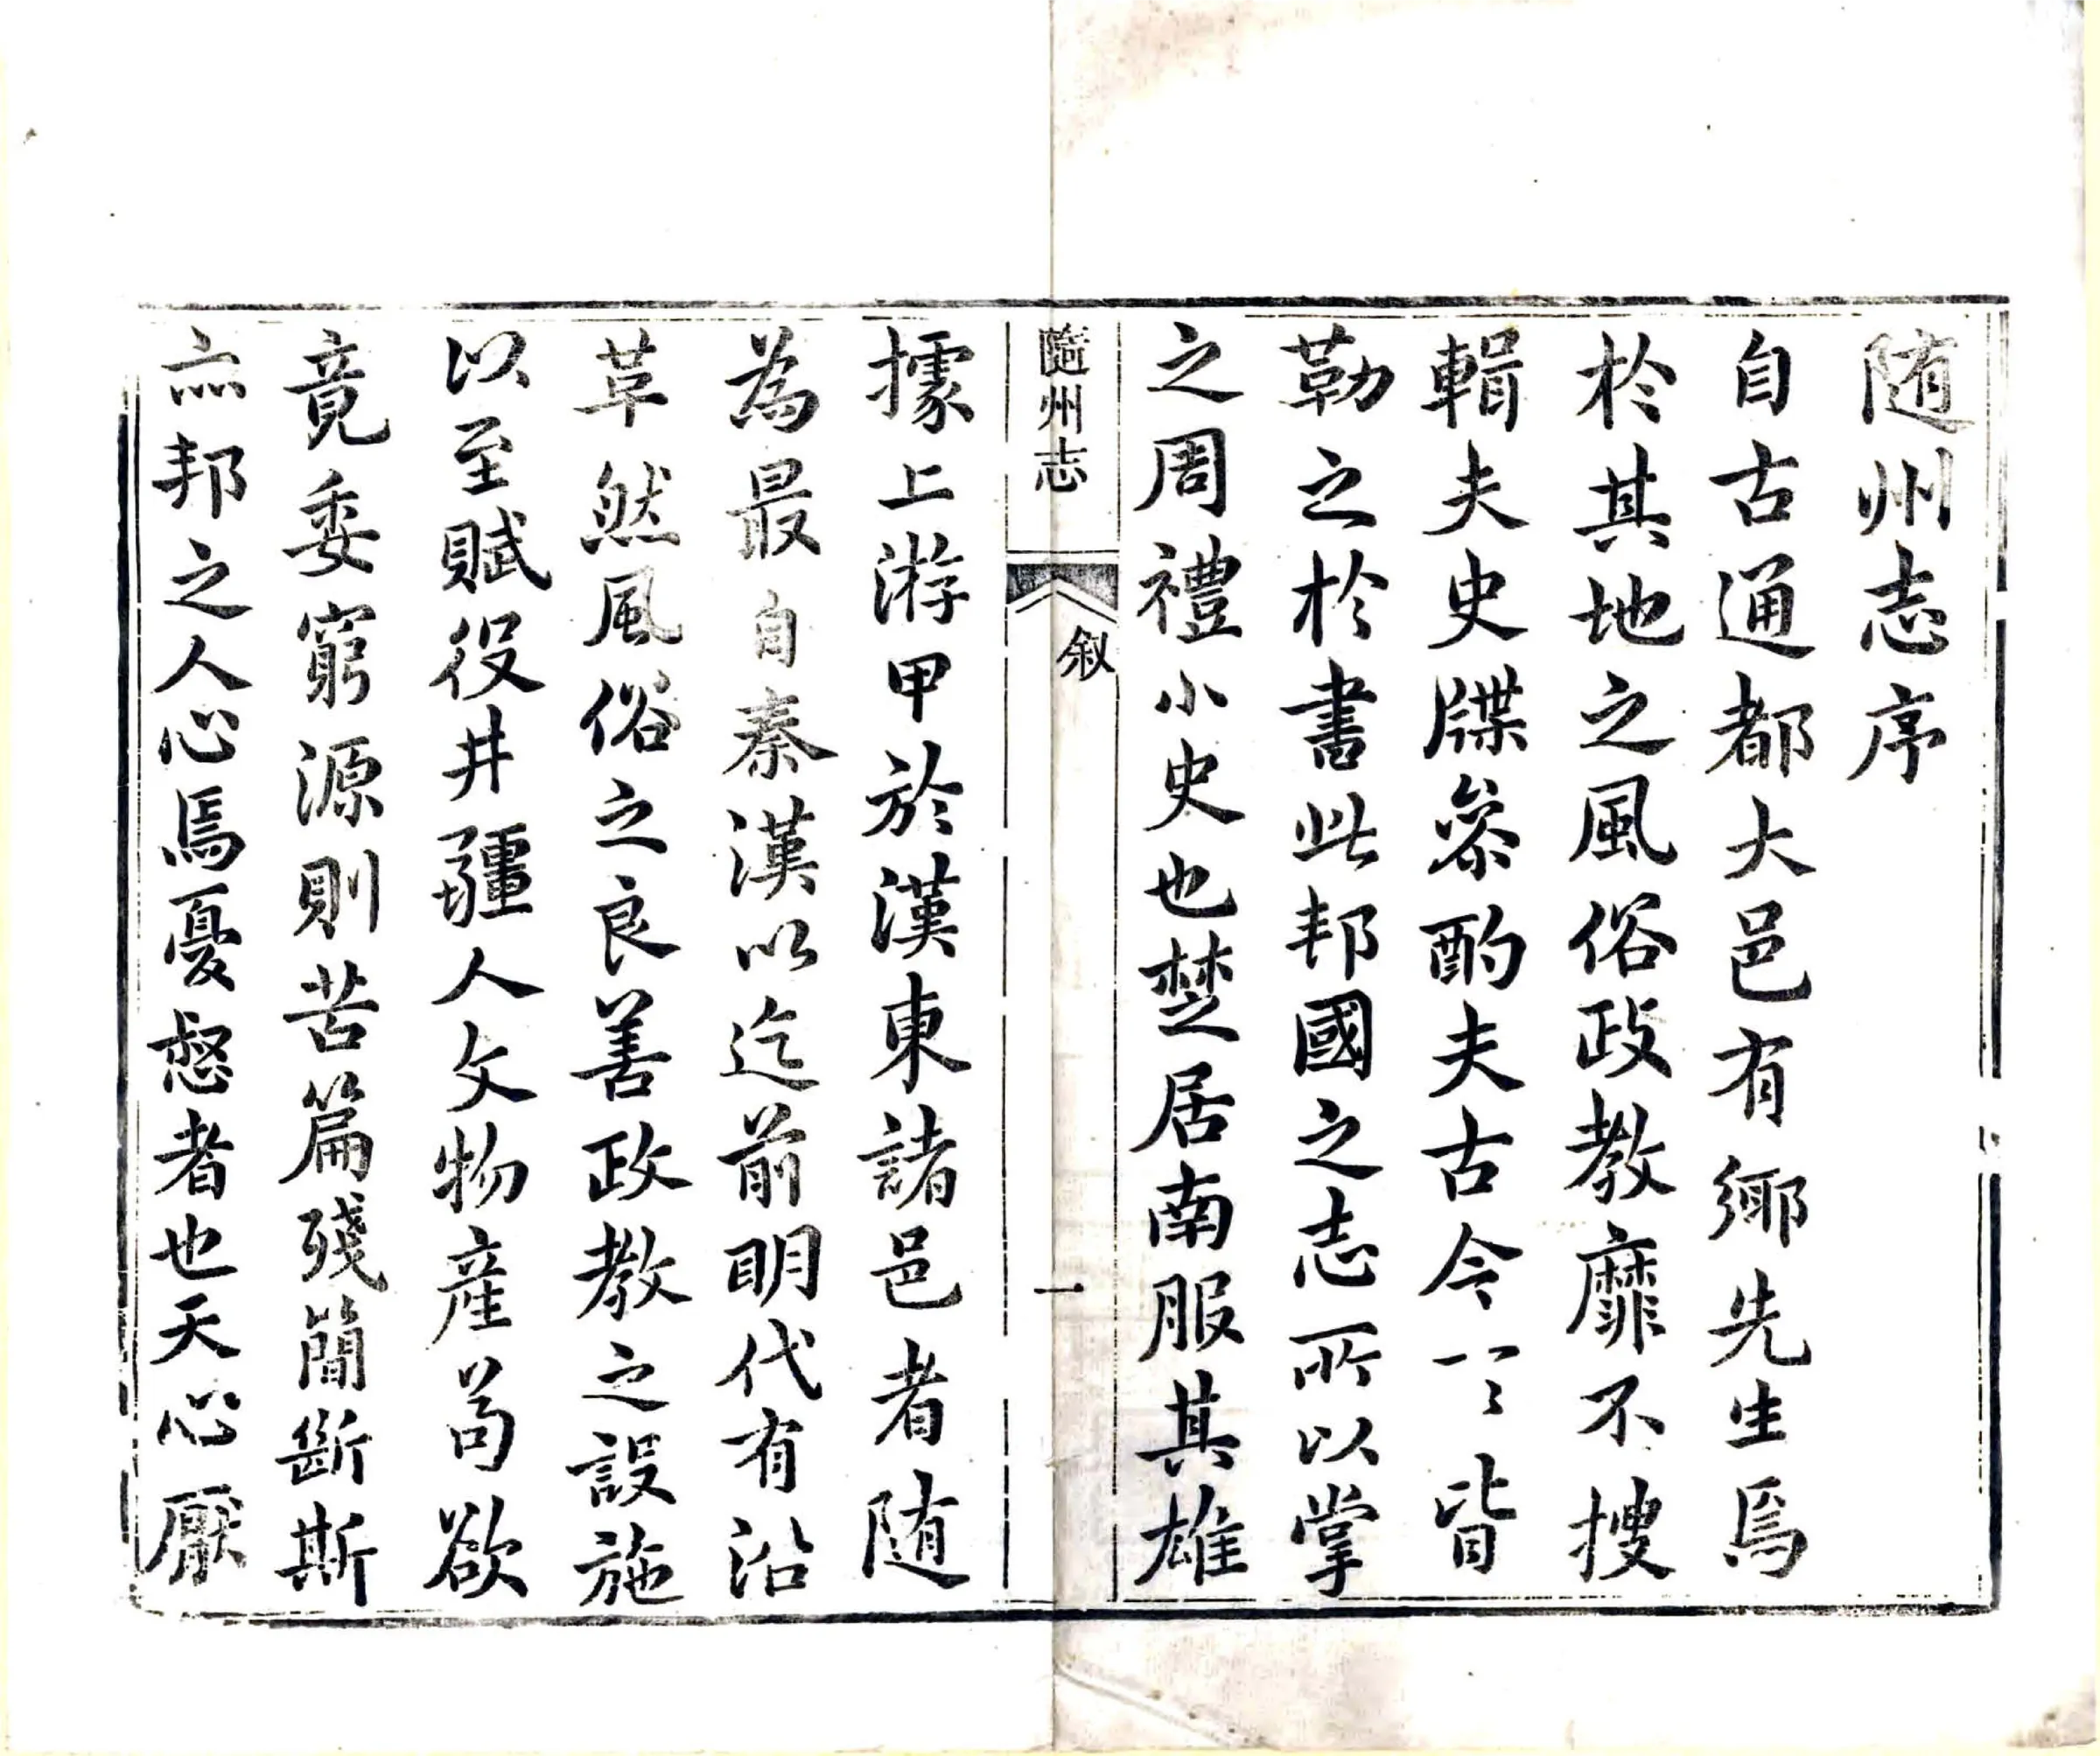 随州志序
自古通都大邑有鄉先生焉
扵其地之風俗政教靡不搜
輯夫史牒叅酌夫古今一一皆
勒之扵書此邦國之志所以掌
之周禮小史也楚居南服其雄
隨州志
叙
一
據上游甲於漢東諸邑者随
為最自秦漢以迄前明代有沿
革然風俗之良善政教之設施
以至賦役井疆人文物産苟欲
竟委窮源則苦篇殘簡斷斯
亦邦之人心焉憂惄者也天心厭